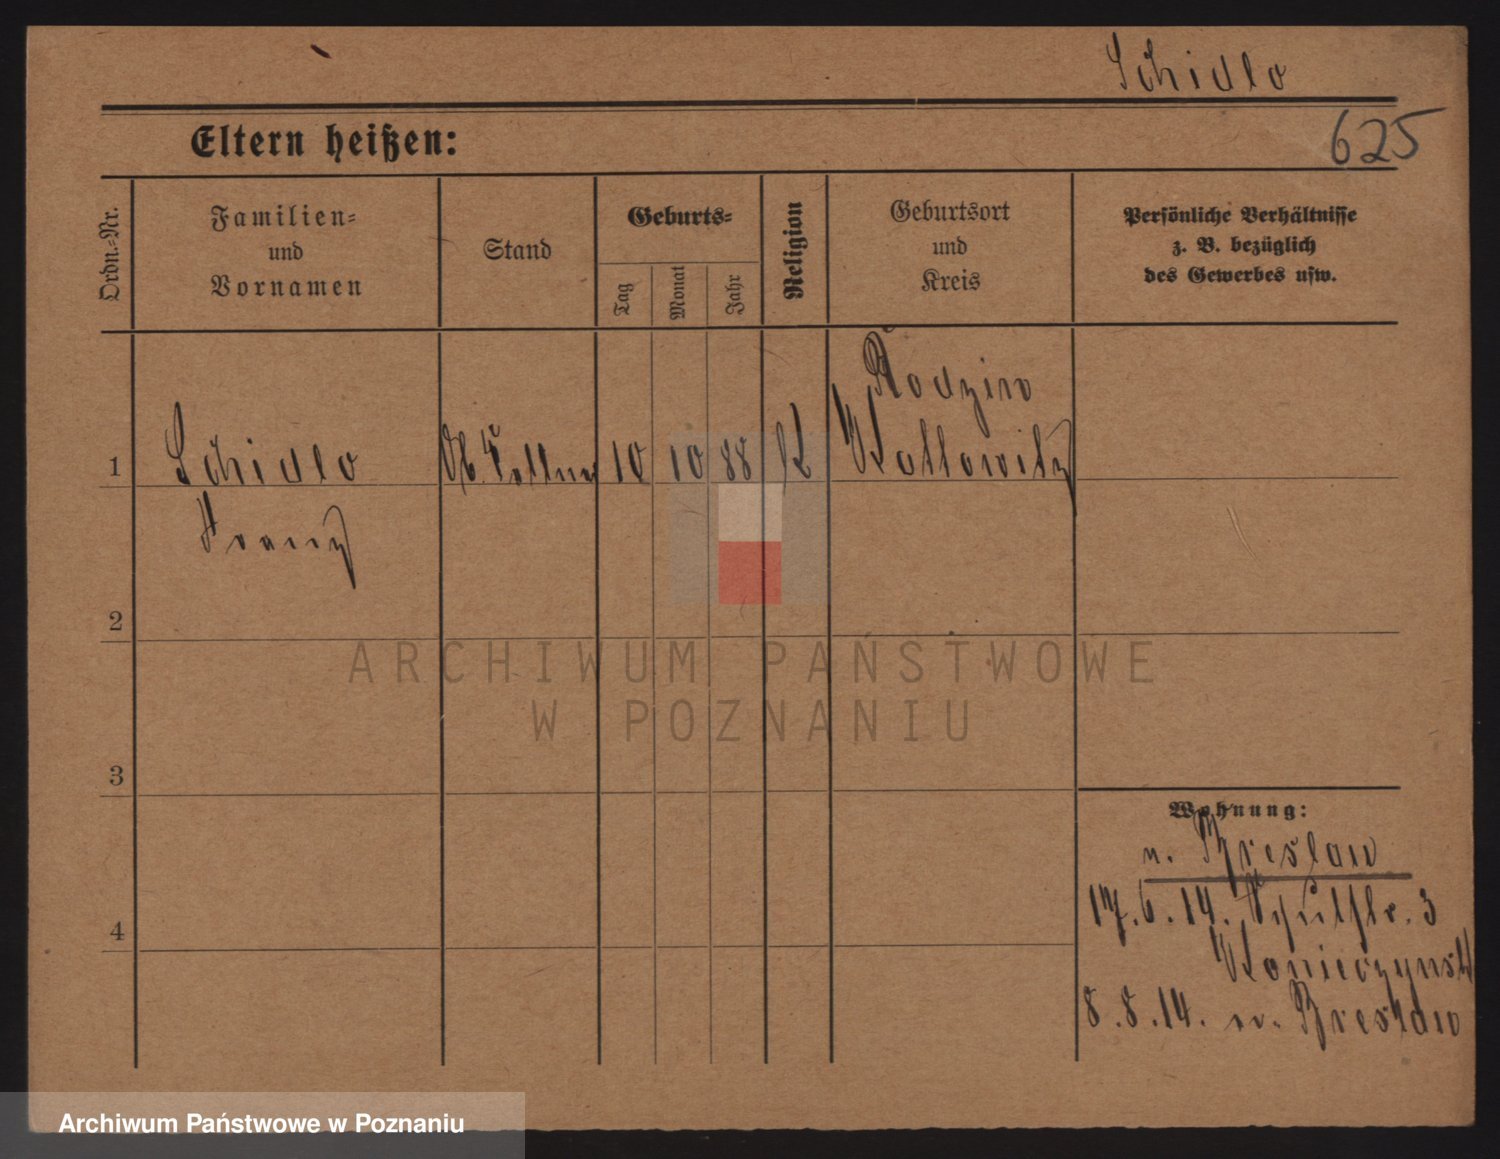 Schidlo
625
Eltern heißen:
Ordn.=Nr.
Familien=
und
Vornamen
Stand
Geburts=
Tag
Monat
Jahr
Religion
Geburtsort
und
Kreis
Persönliche Verhältnisse
z. B. bezüglich
des Gewerbes usw.
Rodzin
1 Schidlo 10 10 88 k Kattowitz
Franz
2
3
4
Wohnung:
v. Breslau
17.6.14. 3
8.8.14. n. Breslau
ARCHIWUM PAŃSTWOWE
W POZNANIU
Archiwum Państwowe w Poznaniu